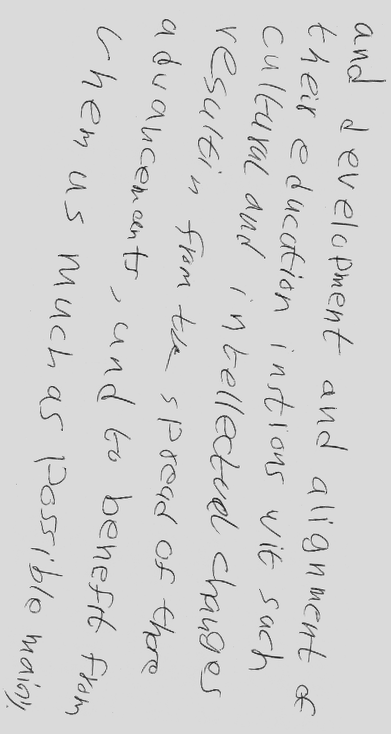 and development and alignment of
their education instions wit such
cultural and intellectual changes
resultin from the spread of there
advancements, and to benefit from
them us much as possible mainy.